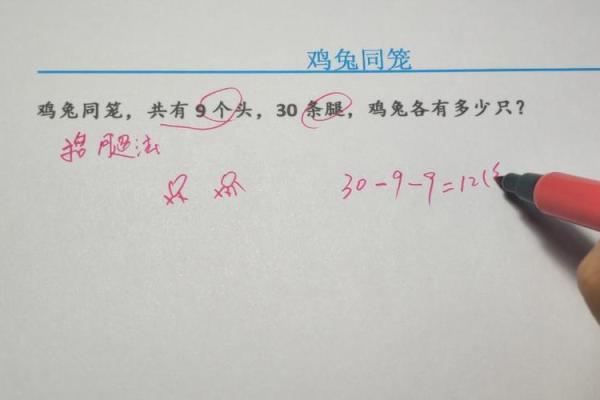 鸡兔同笼
鸡兔同笼，共有 9 个头，30 条腿，鸡兔各有多少只？
抬腿法
30-9-9=12(